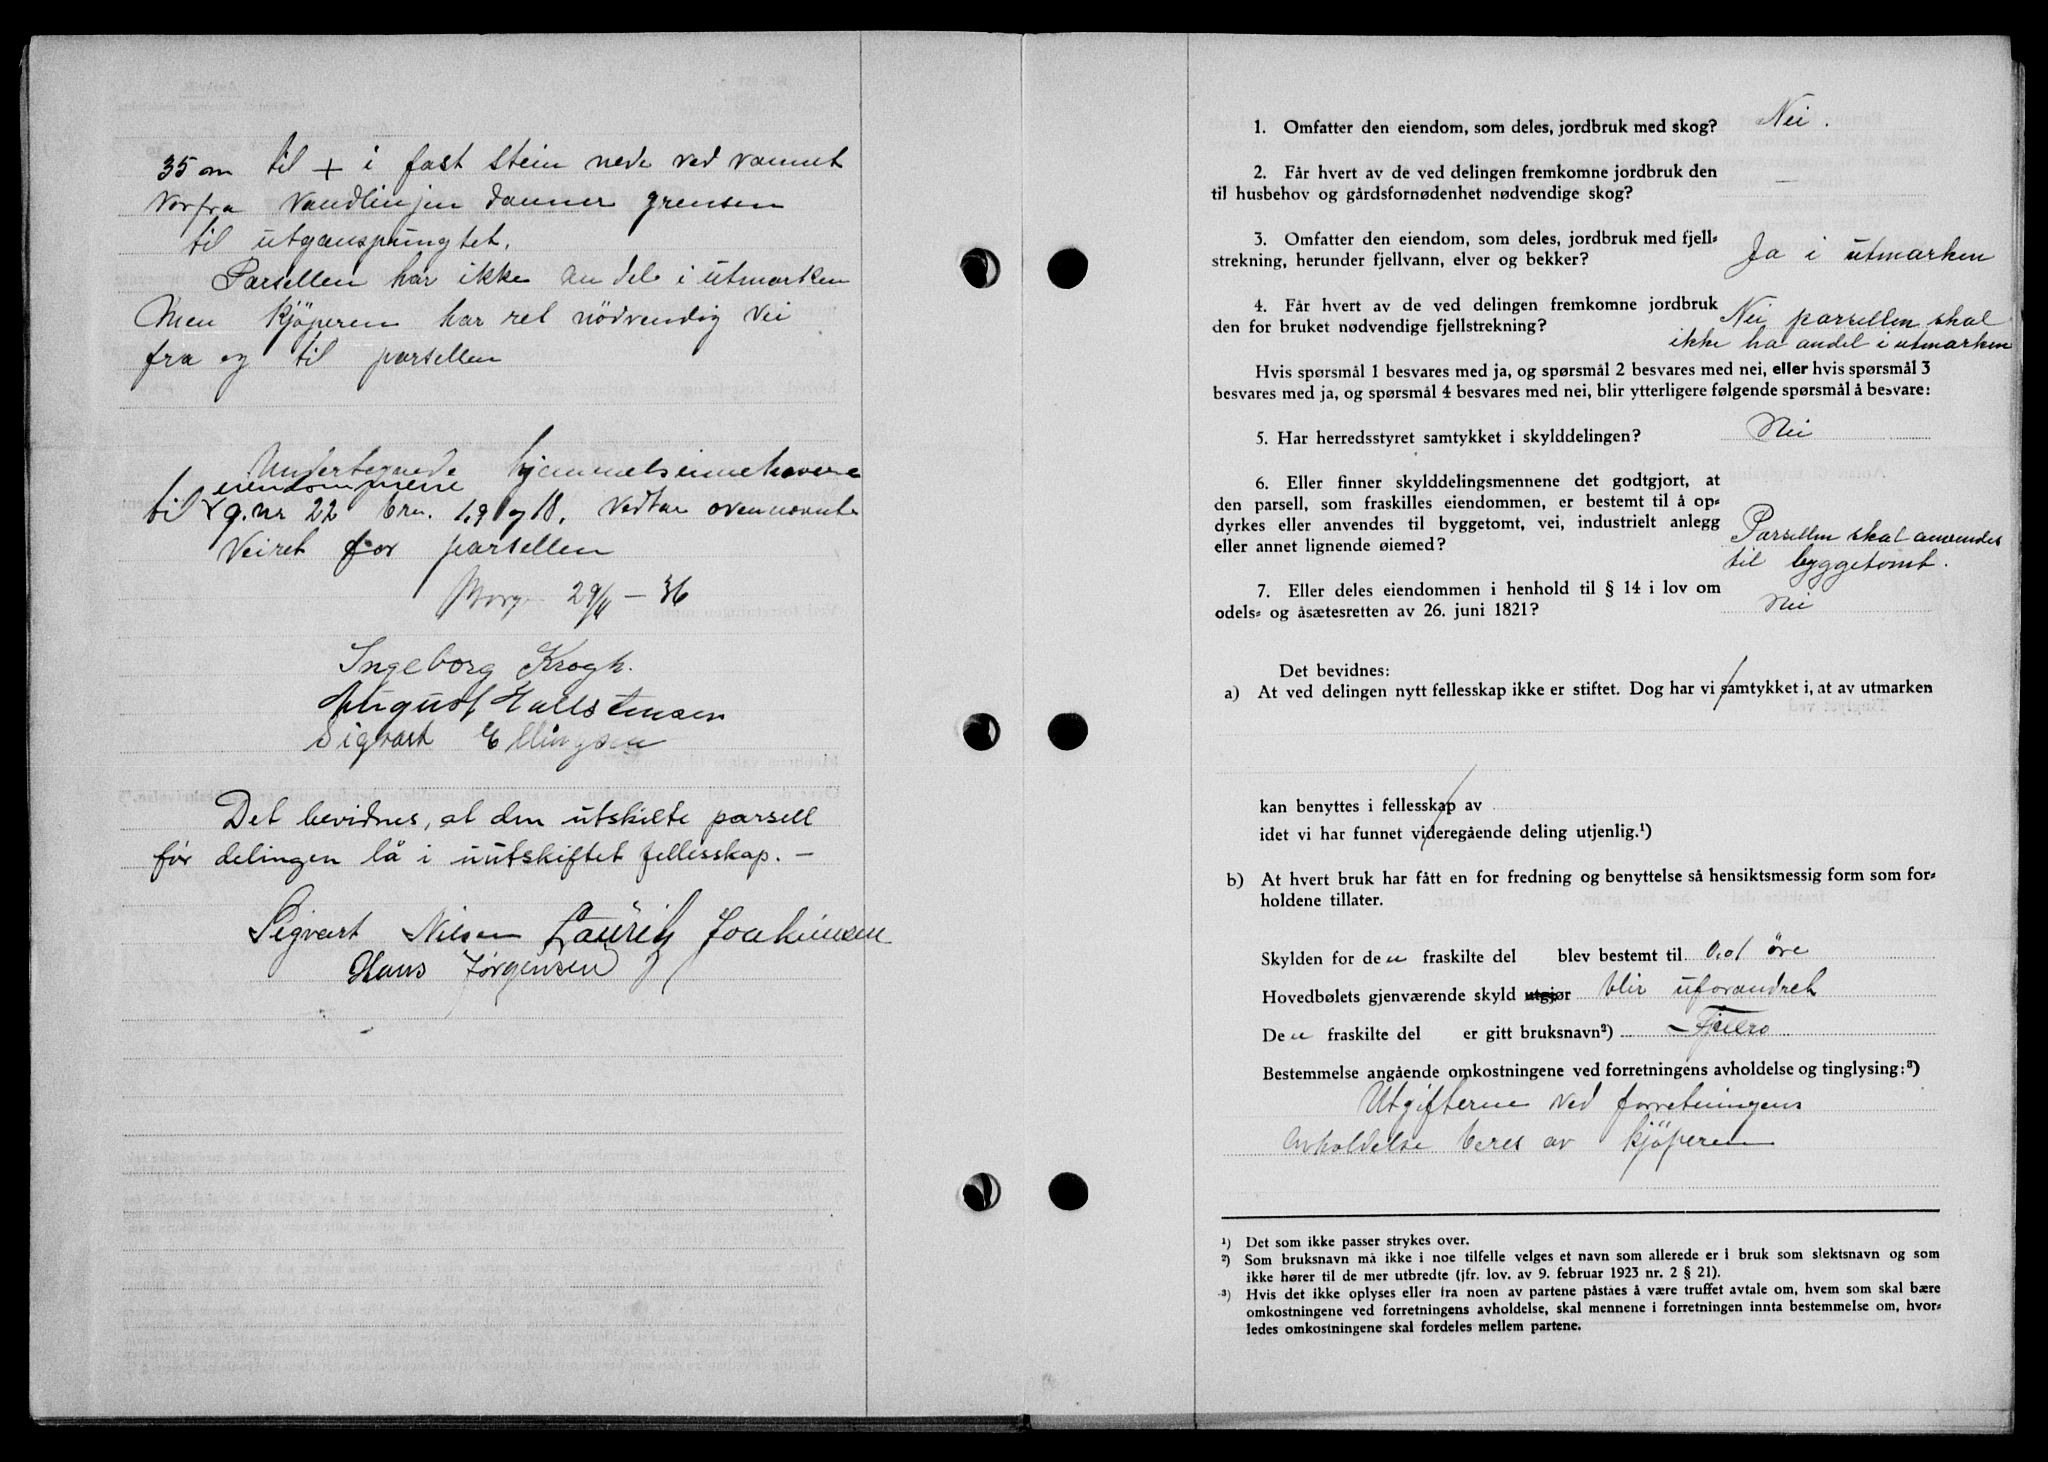 35 m til + i fast stein nede ved vannet
Vorfra Vandlinjen danner grensen
til utganspungtet.
Parsellen har ikke andel i utmarken
Men kjøperen har ret nödvendig vei
fra og til parsellen
Undertegnede hjemmelsinnehavere
eiendommene
til g.nr 22 brn. 1,9 og 18, vedtar ovennevnte
Veiret for parsellen
Borge 29/6 - 36
Ingeborg Krogh.
August Hallstensen
Sigvart Ellingsen
Det bevidnes, at den utskilte parsell
før delingen lå i uutskiftet fellesskap. —
Sigvart Nilsen Lauritz Joakimsen
Hans Jørgensen
1. Omfatter den eiendom, som deles, jordbruk med skog? Nei.
2. Får hvert av de ved delingen fremkomne jordbruk den
til husbehov og gårdsfornødenhet nødvendige skog? —
3. Omfatter den eiendom, som deles, jordbruk med fjell-
strekning, herunder fjellvann, elver og bekker? Ja i utmarken
4. Får hvert av de ved delingen fremkomne jordbruk
den for bruket nødvendige fjellstrekning? Nei parsellen skal
ikke ha andel i utmarken
Hvis spørsmål 1 besvares med ja, og spørsmål 2 besvares med nei, eller hvis spørsmål 3
besvares med ja, og spørsmål 4 besvares med nei, blir ytterligere følgende spørsmål å besvare:
5. Har herredsstyret samtykket i skylddelingen? Nei
6. Eller finner skylddelingsmennene det godtgjort, at
den parsell, som fraskilles eiendommen, er bestemt til å op-
dyrkes eller anvendes til byggetomt, vei, industrielt anlegg
eller annet lignende øiemed? Parsellen skal anvendes
til byggetomt.
7. Eller deles eiendommen i henhold til § 14 i lov om
odels- og åsætesretten av 26. juni 1821? Nei
Det bevidnes:
a) At ved delingen nytt fellesskap ikke er stiftet. Dog har vi samtykket i, at av utmarken
kan benyttes i fellesskap av
idet vi har funnet videregående deling utjenlig.¹)
b) At hvert bruk har fått en for fredning og benyttelse så hensiktsmessig form som for-
holdene tillater.
Skylden for den fraskilte del blev bestemt til 0.01 øre
Hovedbølets gjenværende skyld utgjør blir uforandret
Den fraskilte del er gitt bruksnavn²) Fjæro
Bestemmelse angående omkostningene ved forretningens avholdelse og tinglysing:³)
Utgifterne ved forretningens
avholdelse beres av kjøperen
¹) Det som ikke passer strykes over.
²) Som bruksnavn må ikke i noe tilfelle velges et navn som allerede er i bruk som slektsnavn og som
ikke hører til de mer utbredte (jfr. lov. av 9. februar 1923 nr. 2 § 21).
³) Hvis det ikke oplyses eller fra noen av partene påståes å være truffet avtale om, hvem som skal bære
omkostningene ved forretningens avholdelse, skal mennene i forretningen innta bestemmelse om, hvor-
ledes omkostningene skal fordeles mellem partene.